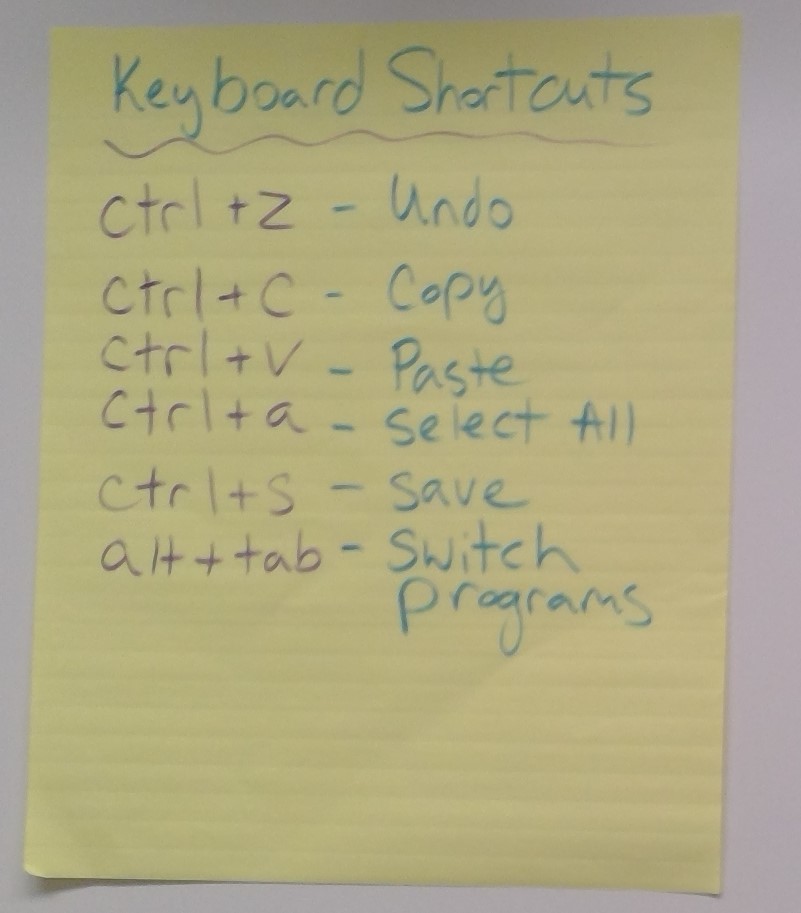 Keyboard Shortcuts
ctrl + z - Undo
ctrl + c - Copy
ctrl + v - Paste
ctrl + a - Select All
ctrl + s - save
alt + tab - Switch
programs